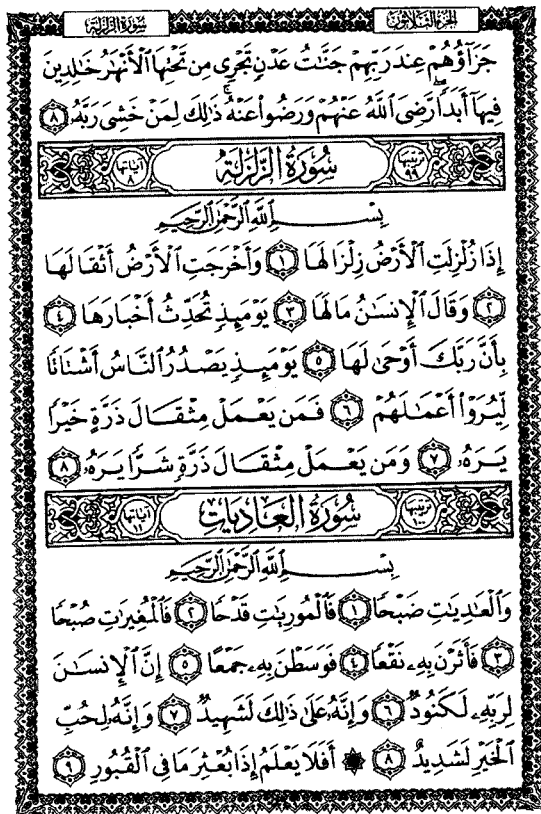 سورة الزلزلة الجزء الثلاثون
جَزَآؤُهُمْ عِندَ رَبِّهِمْ جَنَّٰتُ عَدْنٍ تَجْرِى مِن تَحْتِهَا ٱلْأَنْهَٰرُ خَٰلِدِينَ
فِيهَآ أَبَدًا ۖ رَّضِىَ ٱللَّهُ عَنْهُمْ وَرَضُوا۟ عَنْهُ ۚ ذَٰلِكَ لِمَنْ خَشِىَ رَبَّهُۥ ٨
ترتيبها ٩٩ سُورَةُ الزَّلْزَلَة آياتها ٨
بِسْمِ ٱللَّهِ ٱلرَّحْمَٰنِ ٱلرَّحِيمِ
إِذَا زُلْزِلَتِ ٱلْأَرْضُ زِلْزَالَهَا ١ وَأَخْرَجَتِ ٱلْأَرْضُ أَثْقَالَهَا
٢ وَقَالَ ٱلْإِنسَٰنُ مَا لَهَا ٣ يَوْمَئِذٍ تُحَدِّثُ أَخْبَارَهَا ٤
بِأَنَّ رَبَّكَ أَوْحَىٰ لَهَا ٥ يَوْمَئِذٍ يَصْدُرُ ٱلنَّاسُ أَشْتَاتًا
لِّيُرَوْا۟ أَعْمَٰلَهُمْ ٦ فَمَن يَعْمَلْ مِثْقَالَ ذَرَّةٍ خَيْرًا
يَرَهُۥ ٧ وَمَن يَعْمَلْ مِثْقَالَ ذَرَّةٍ شَرًّا يَرَهُۥ ٨
ترتيبها ١٠٠ سُورَةُ العَادِيَات آياتها ١١
بِسْمِ ٱللَّهِ ٱلرَّحْمَٰنِ ٱلرَّحِيمِ
وَٱلْعَٰدِيَٰتِ ضَبْحًا ١ فَٱلْمُورِيَٰتِ قَدْحًا ٢ فَٱلْمُغِيرَٰتِ صُبْحًا
٣ فَأَثَرْنَ بِهِۦ نَقْعًا ٤ فَوَسَطْنَ بِهِۦ جَمْعًا ٥ إِنَّ ٱلْإِنسَٰنَ
لِرَبِّهِۦ لَكَنُودٌ ٦ وَإِنَّهُۥ عَلَىٰ ذَٰلِكَ لَشَهِيدٌ ٧ وَإِنَّهُۥ لِحُبِّ
ٱلْخَيْرِ لَشَدِيدٌ ٨ ۞ أَفَلَا يَعْلَمُ إِذَا بُعْثِرَ مَا فِى ٱلْقُبُورِ ٩